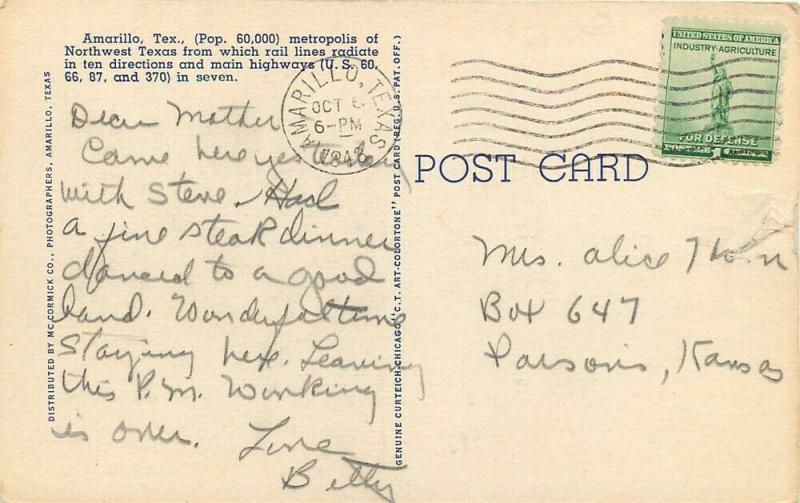 Amarillo, Tex., (Pop. 60,000) metropolis of
Northwest Texas from which rail lines radiate
in ten directions and main highways (U. S. 60,
66, 87, and 370) in seven.
DISTRIBUTED BY MCCORMICK CO., PHOTOGRAPHERS, AMARILLO, TEXAS
Dear Mother
Came here yesterday
with Steve. Had
a fine steak dinner
danced to a good
band. Wonderful time
staying here. Leaving
this P.M. Working
is over. Love
Betty
GENUINE CURTEICH-CHICAGO "C.T. ART-COLORTONE" POST CARD (REG. U.S. PAT. OFF.)
AMARILLO, TEXAS
OCT 6
6-PM
POST CARD
UNITED STATES OF AMERICA
INDUSTRY-AGRICULTURE
FOR DEFENSE
Mrs. Alice
Box 647
Parsons, Kansas